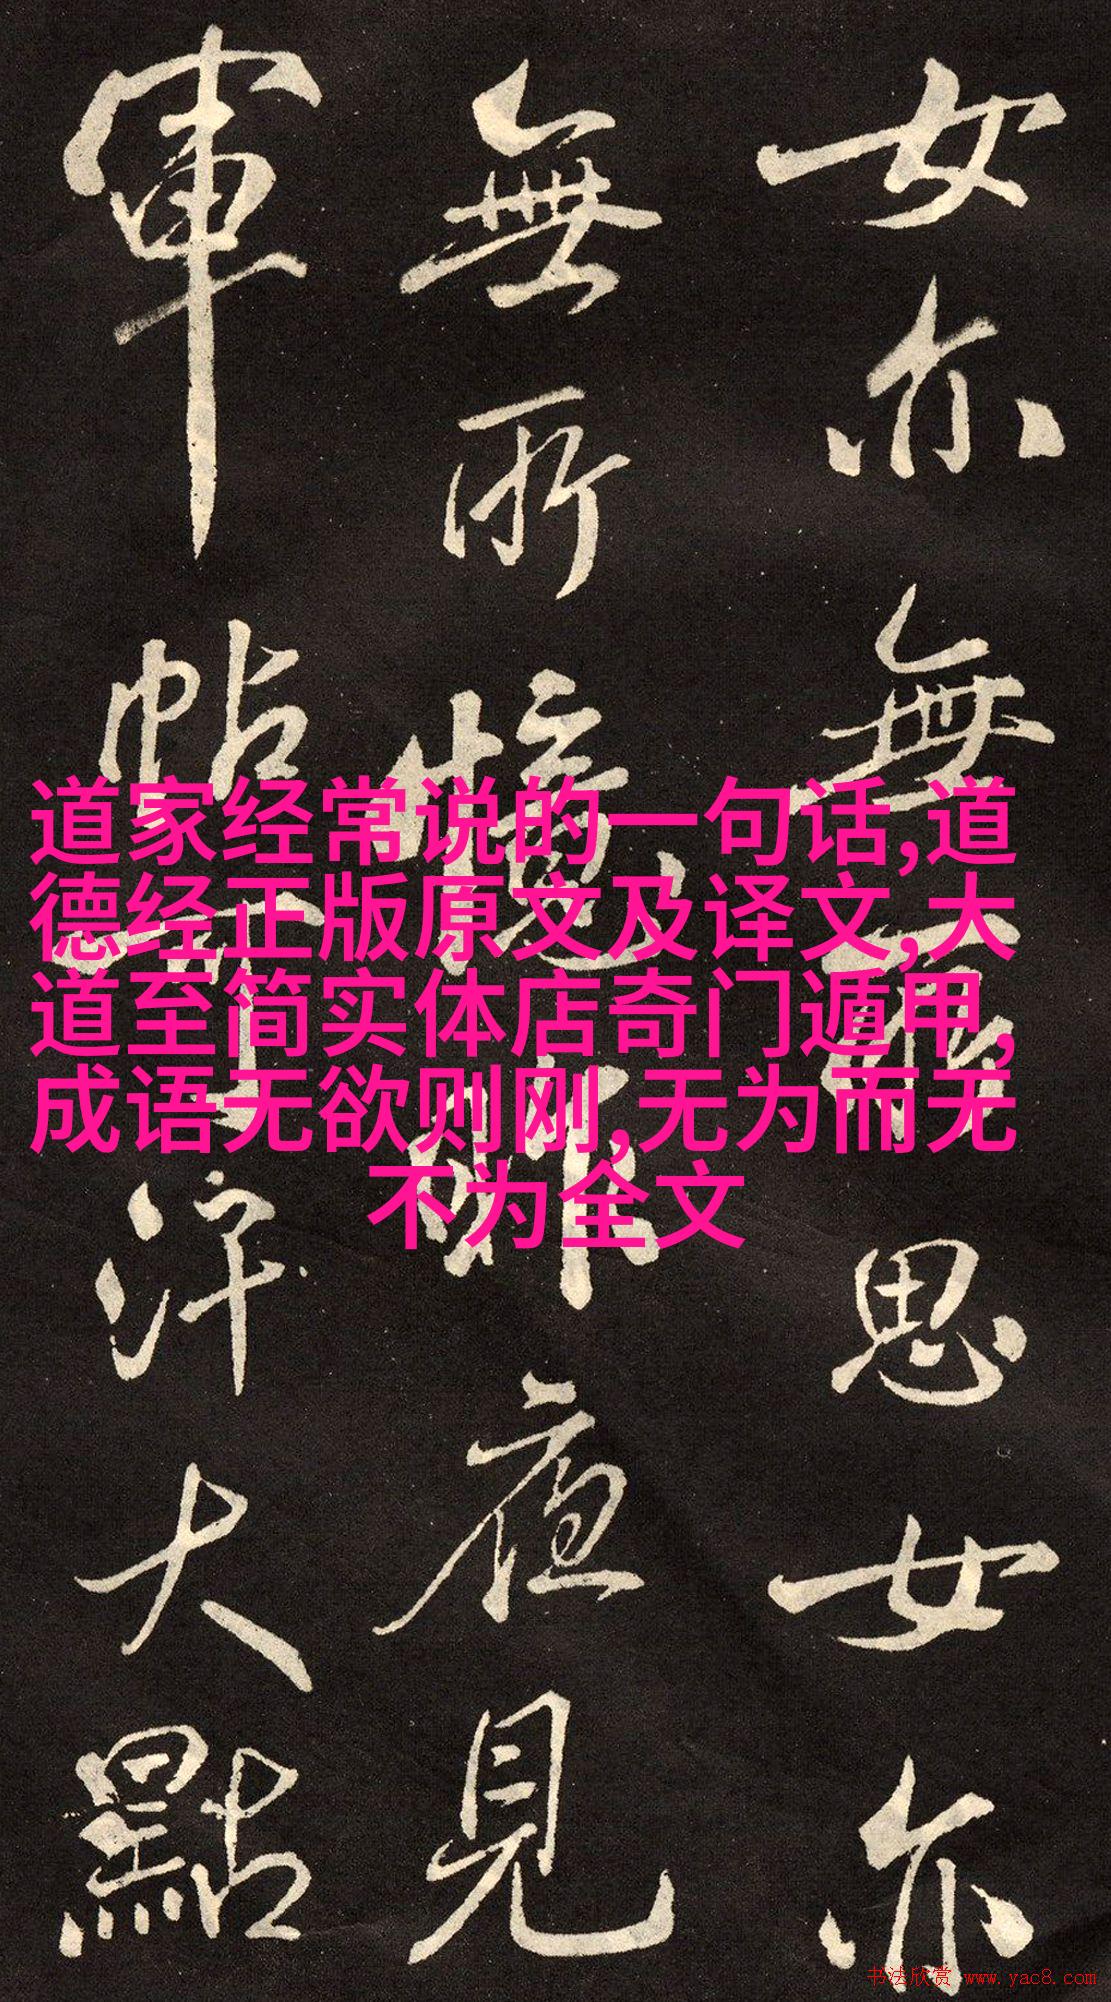 女亦無所思女亦
無所憶昨夜見
軍帖可汗大點
道家经常说的一句话,道
德经正版原文及译文,大
道至简实体店奇门遁甲,
成语无欲则刚,无为而无
不为全文
书法欣赏 www.yac8.com